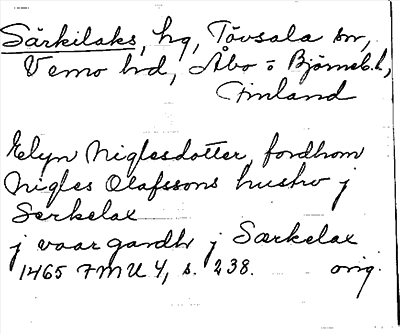 Särkilaks, hg, Tövsala sn,
Vemo hd, Åbo o Björneb. l,
Finland
Elyn Niglesdotter, fordhom
Nigles Olafssons hustro j
Serkelax
j vaar gardh j Særkelax
1465 FMU 4, s. 238. orig.